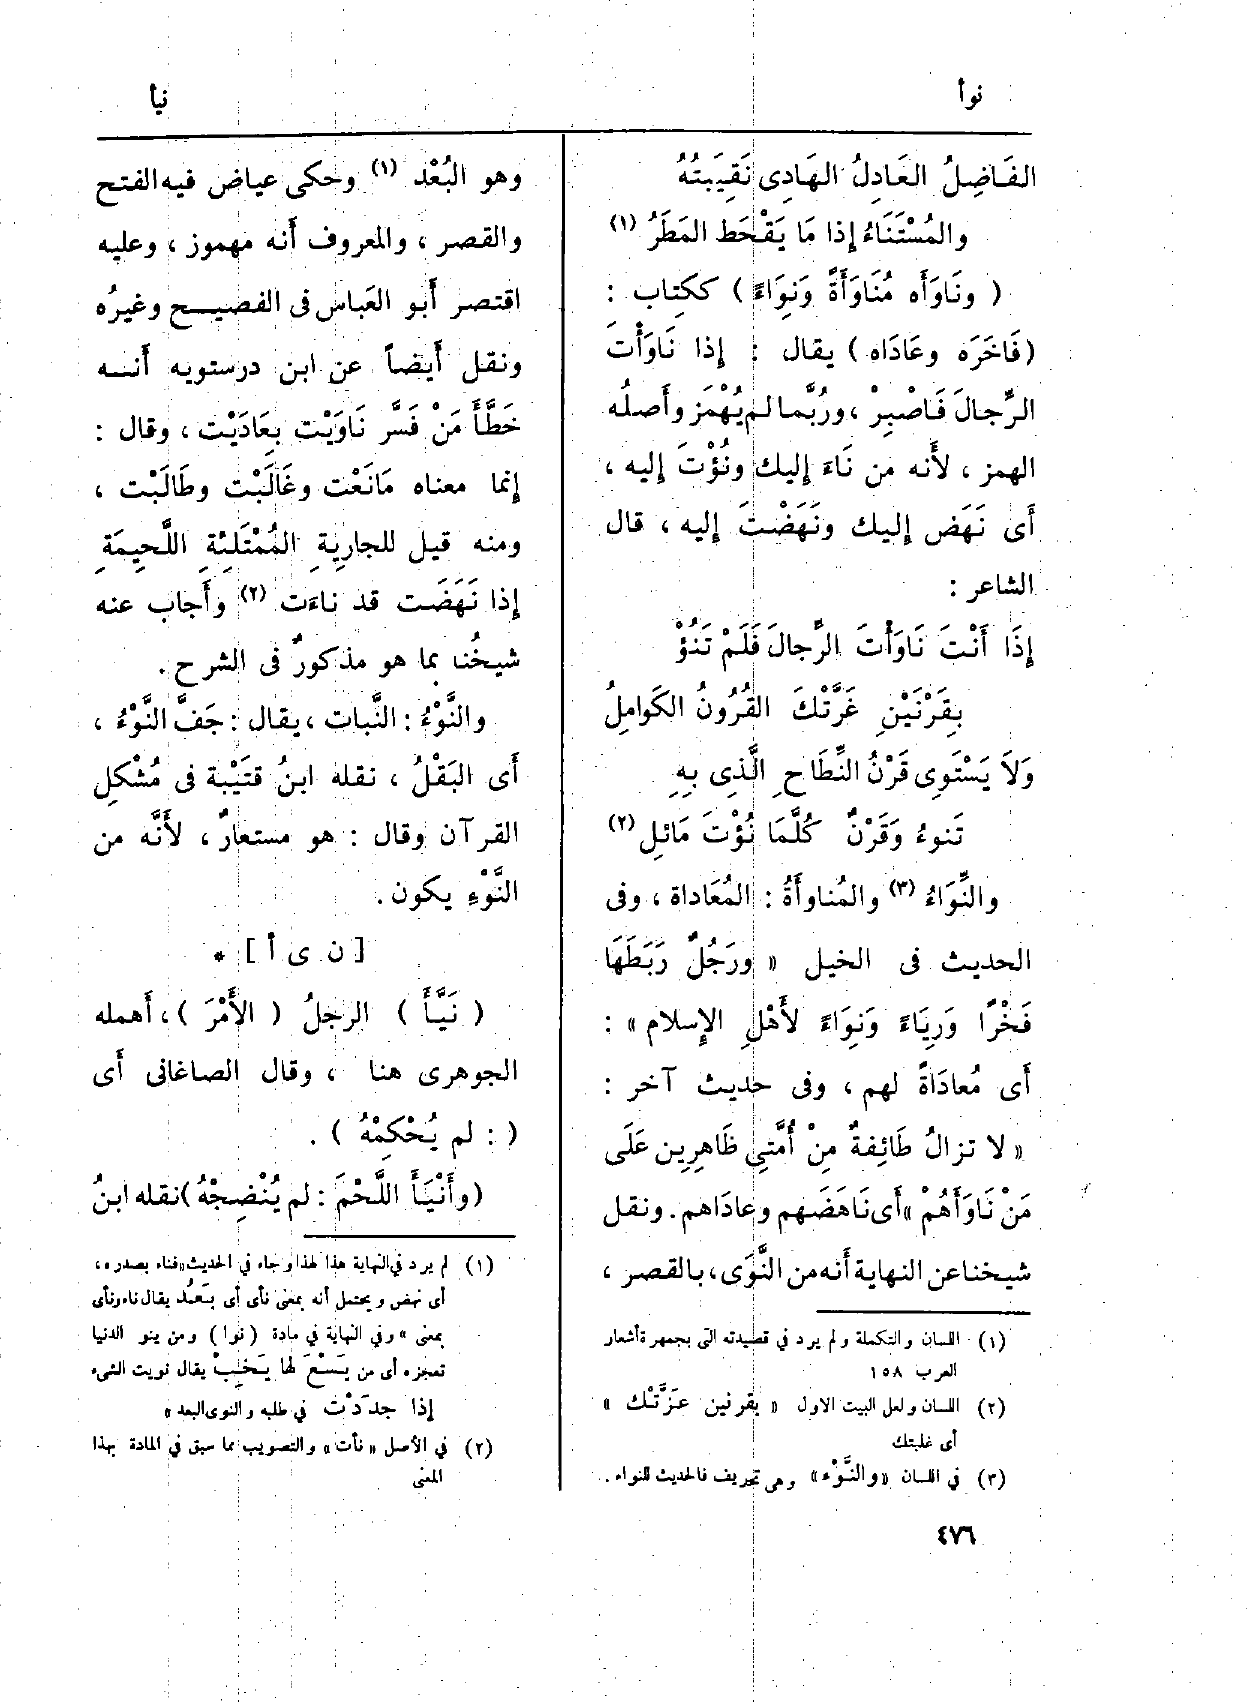 نوأ
نيأ
الفَاضِلُ العَادِلُ الهَادِى نَقِيبَتُهُ
والمُسْتَنَاءُ إذا مَا يَقْحَط المَطَرُ (١)
( ونَاوَأَه مُنَاوَأَةً وَنِوَاءً ) ككِتاب :
(فَاخَرَه وعَادَاه ) يقال : إذا نَاوَأْتَ
الرِّجالَ فَاصْبِرْ ، ورُبَّما لم يُهْمَز وأَصلُه
الهمز ، لأَنه من نَاءَ إليك ونُؤْتَ إليه ،
أَى نَهَض إليك ونَهَضْتَ إليه ، قال
الشاعر :
إِذَا أَنْتَ نَاوَأْتَ الرِّجالَ فَلَمْ تَنُؤْ
بِقَرْنَيْنِ غَرَّتْكَ القُرُونُ الكَوامِلُ
وَلاَ يَسْتَوِى قَرْنُ النِّطَاحِ الَّذِى بِهِ
تَنوءُ وَقَرْنٌ كُلَّمَا نُؤْتَ مَائِلِ (٢)
والنِّوَاءُ (٣) والمُناوأَةُ : المُعَاداة ، وفى
الحديث فى الخيل « ورَجُلٌ رَبَطَهَا
فَخْرًا وَرِيَاءً وَنِوَاءً لأَهْلِ الإسلام » :
أَى مُعادَاةً لهم ، وفى حديث آخر :
« لا تزالُ طَائِفةٌ مِنْ أُمَّتِى ظَاهِرِين عَلَى
مَنْ نَاوَأَهُمْ » أَى نَاهَضَهم وعادَاهم . ونقل
شيخنا عن النهاية أَنه من النَّوَى ، بالقصر ،
(١) اللسان والتكملة ولم يرد في قصيدته التى بجمهرة أشعار
العرب ١٥٨
(٢) اللسان ولعل البيت الاول « بقرنين عَزَّتْك »
أى غلبتك
(٣) في اللسان «والنَّوْء» وهى تحريف فالحديث للنواء .
وهو البُعْد (١) وحكى عياض فيه الفتح
والقصر ، والمعروف أَنه مهموز ، وعليه
اقتصر أَبو العَباس فى الفصيح وغيرُه
ونقل أَيضاً عن ابن درستويه أَنه
خَطَّأَ مَنْ فَسَّر نَاوَيْت بِعَادَيْت ، وقال :
إنما معناه مَانَعْت وغَالَبْت وطَالَبْت ،
ومنه قيل للجارِيةِ المُمْتَلِئَةِ اللَّحِيمَةِ
إذا نَهَضَت قد ناءَت (٢) وأَجاب عنه
شيخُنا بما هو مذكورٌ فى الشرح .
والنَّوْءُ : النَّبات ، يقال : جَفَّ النَّوْءُ ،
أَى البَقْلُ ، نقله ابنُ قتَيْبة فى مُشْكِل
القرآن وقال : هو مستعارٌ ، لأَنَّه من
النَّوْءِ يكون .
[ ن ى أ ] *
( نَيَّأَ ) الرجلُ ( الأَمْرَ ) ، أَهمله
الجوهرى هنا ، وقال الصاغانى أَى
( : لم يُحْكِمْهُ ) .
(وأَنْيَأَ اللَّحْمَ : لم يُنْضِجْهُ) نقله ابنُ
(١) لم يرد في النهاية هذا لهذا وجاء في الحديث «فناء بصدره ،
أى نهض ويحتمل أنه بمعنى نأى أى بَعُد يقال ناء ونأى
بمعنى » وفي النهاية في مادة (نوا) ومن ينو الدنيا
تعجزه أى من يَسْعَ لها يَخِبْ يقال نويت الشىء
إذا جدَدْت في طلبه والنوى البعد »
(٢) في الأصل « نأت » والتصويب مما سبق في المادة بهذا
المعنى
٤٧٦